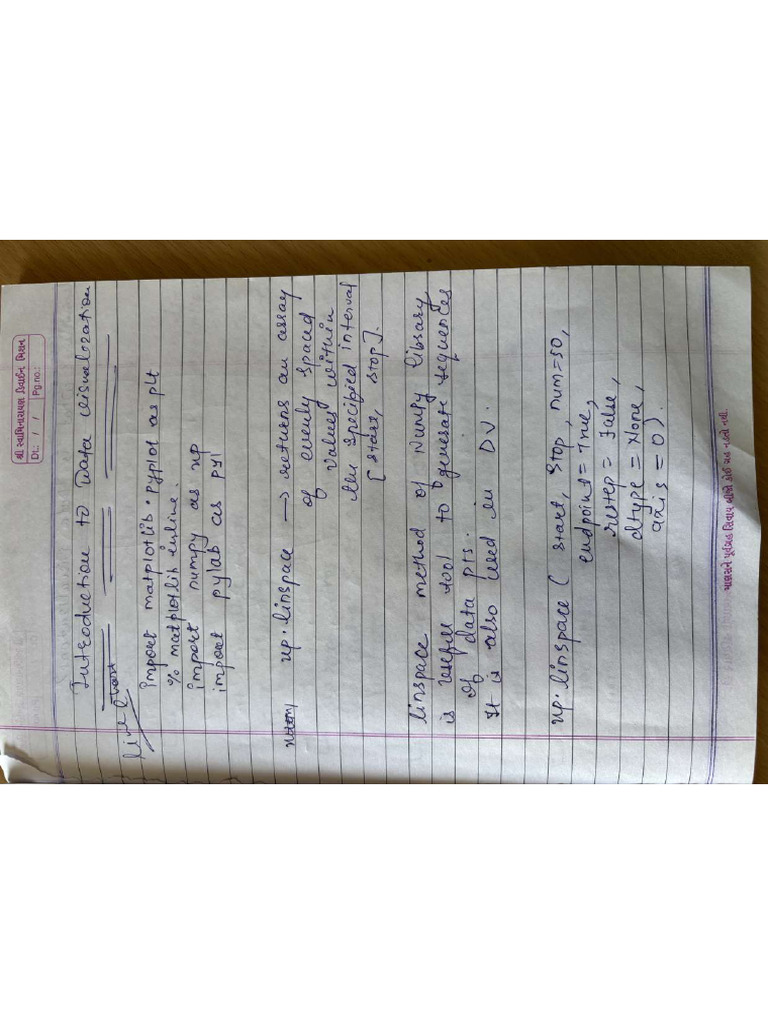 શ્રી સ્વામિનારાયણ ડિવાઈન મિશન
Dt.: / / Pg.no.:
Introduction to Data Visualization
Live Chart
import matplotlib.pyplot as plt
% matplotlib inline.
import numpy as np
import pylab as pyl
np.linspace → returns an array
of evenly spaced
values within
the specified interval
[start, stop].
linspace method of Numpy library
is useful tool to generate sequences
of data pts.
It is also used in DV.
np.linspace ( start, stop, num=50,
endpoint = True,
restep = False,
dtype = None,
axis = 0).